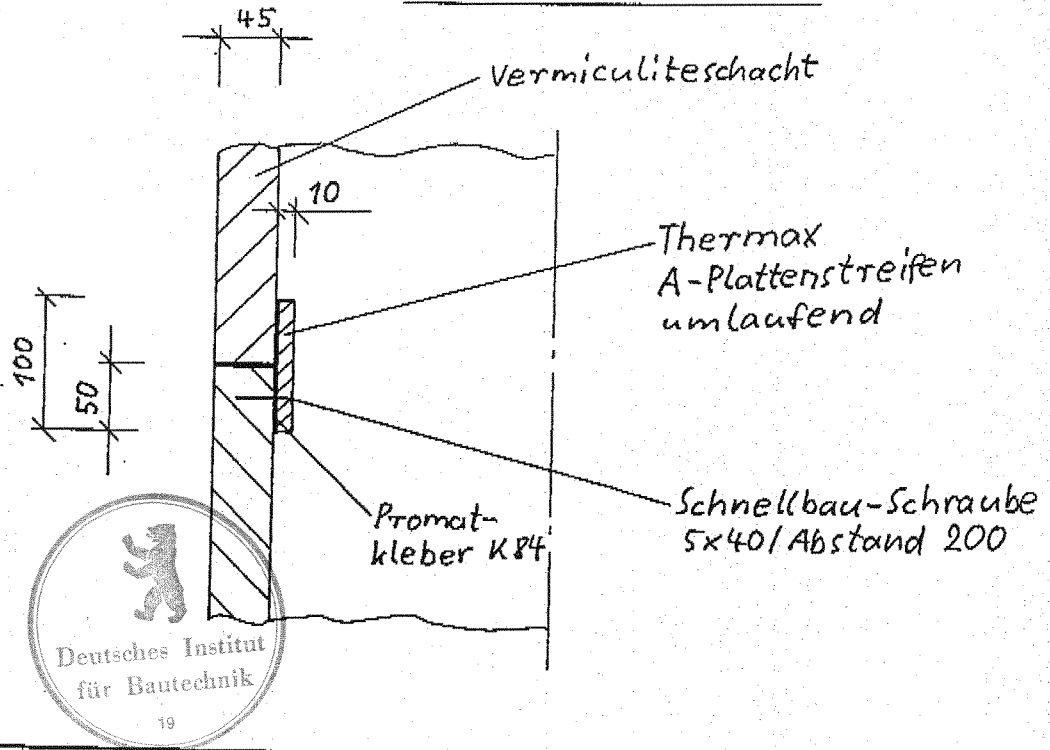 45
Vermiculiteschacht
10
Thermax
A-Plattenstreifen
umlaufend
100
50
Promat-
kleber K84
Schnellbau-Schraube
5x40/Abstand 200
Deutsches Institut
für Bautechnik
19